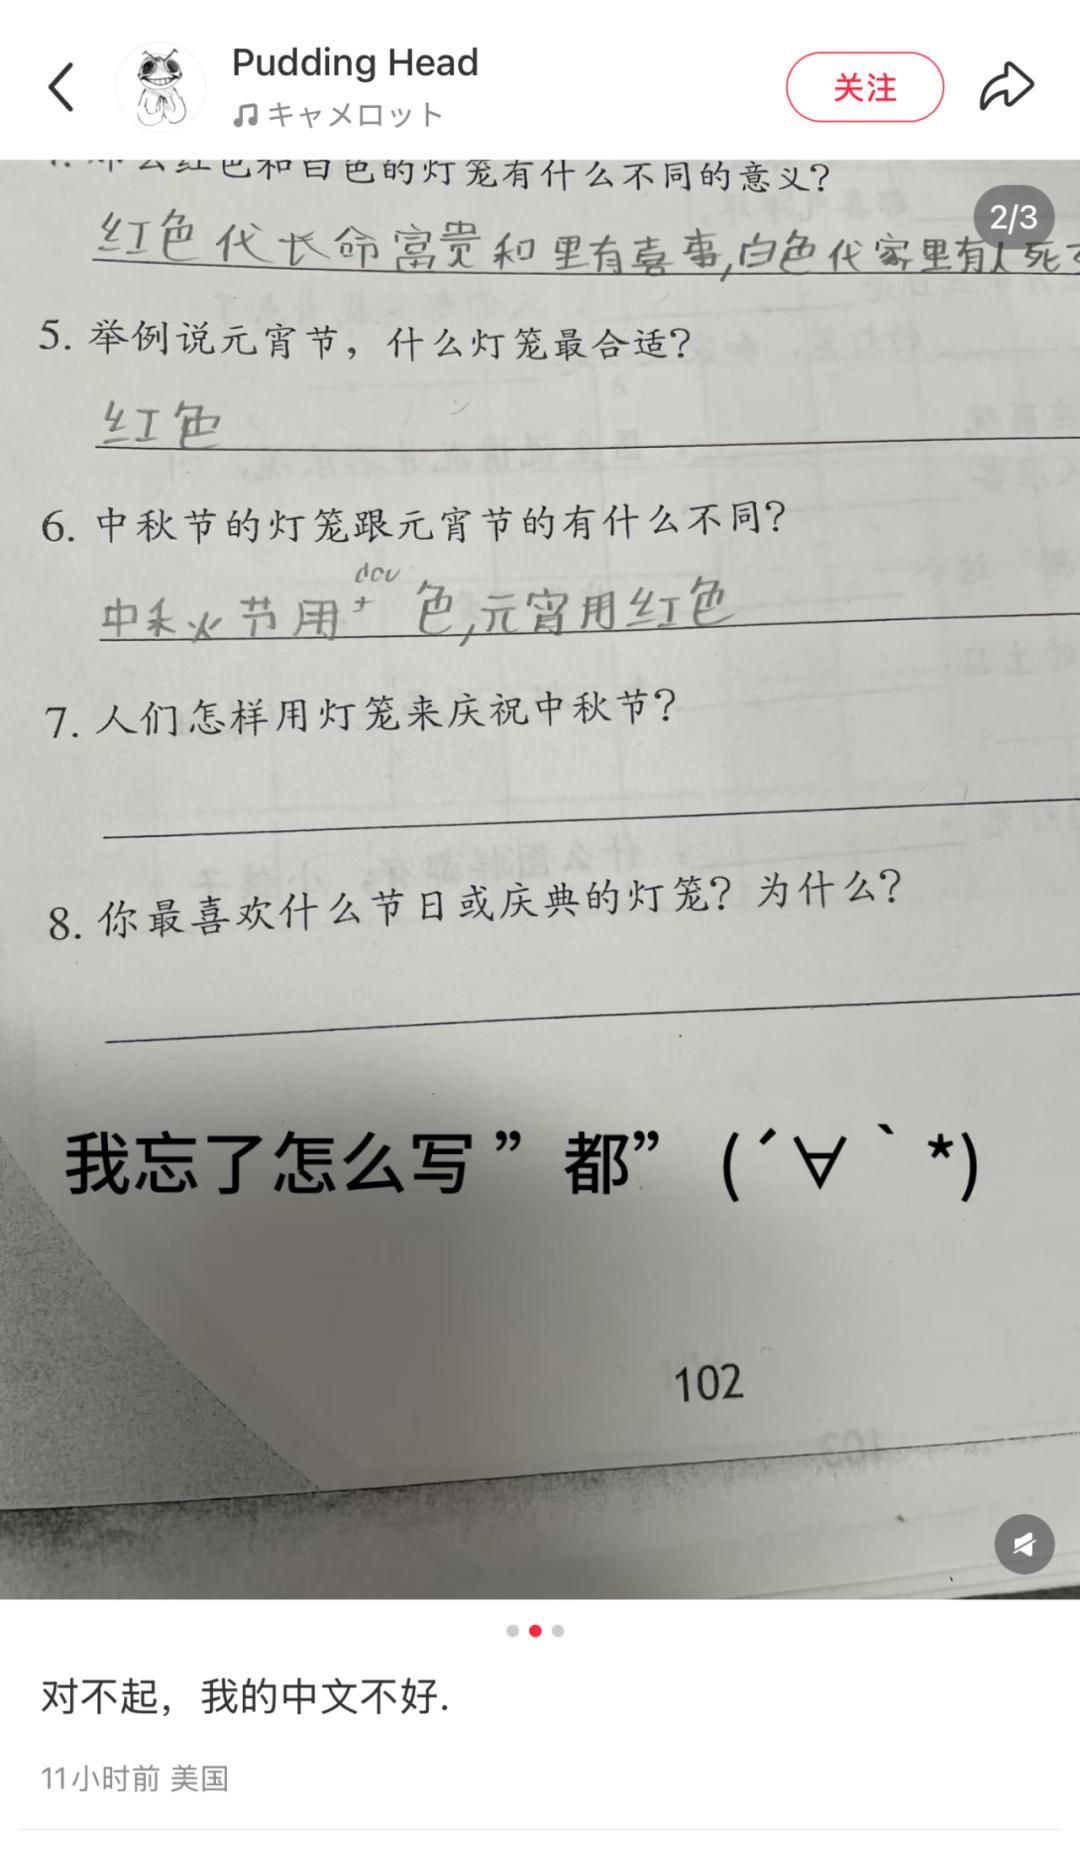 Pudding Head
キャメロット
关注
2/3
那么红色和白色的灯笼有什么不同的意义?
红色代长命富贵和里有喜事,白色代家里有人死
5. 举例说元宵节，什么灯笼最合适?
红色
6. 中秋节的灯笼跟元宵节的有什么不同?
dou
中秋节用 色,元宵用红色
7. 人们怎样用灯笼来庆祝中秋节?
8. 你最喜欢什么节日或庆典的灯笼? 为什么?
我忘了怎么写 ” 都” (´∀｀*)
102
对不起，我的中文不好.
11小时前 美国